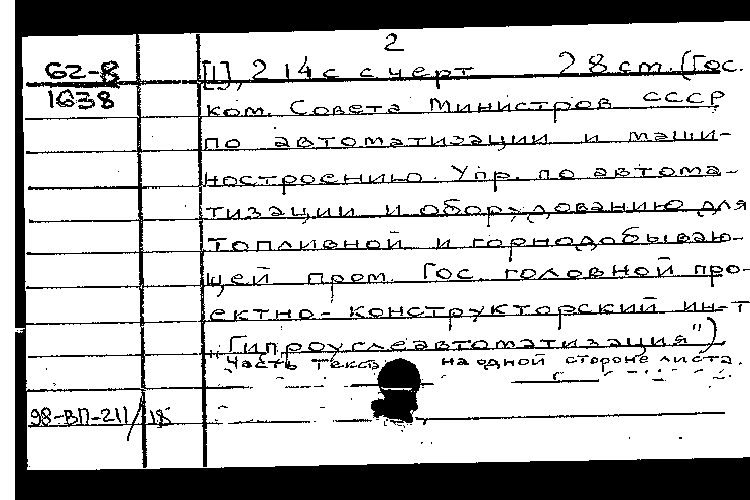 2
62-8
1638
[1], 214 с с черт 28 см. (Гос.
ком. Совета Министров СССР
по автоматизации и маши-
ностроению. Упр. по автома-
тизации и оборудованию для
топливной и горнодобываю-
щей пром. Гос. головной про-
ектно-конструкторский ин-т
"Гипроуглеавтоматизация")
Часть текста на одной стороне листа.
98-ВП-211/18